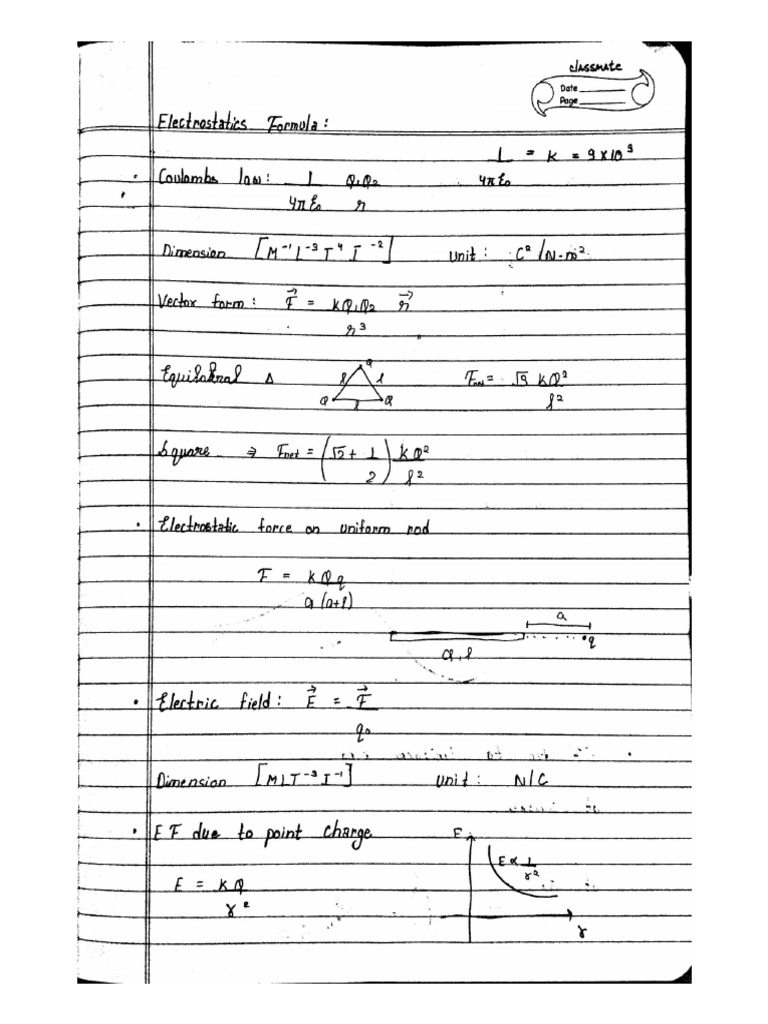 classmate
Date
Page
Electrostatics Formula:
1/4πε₀ = K = 9×10⁹
Coulombs law: 1/4πε₀ Q₁Q₂/r
Dimension [M⁻¹L⁻³T⁴I⁻²] Unit: C²/N-m²
Vector form: F⃗ = KQ₁Q₂/r³ r⃗
Equilateral Δ Q l l Q l Q Fnet = √3 KQ²/l²
Square ⇒ Fnet = (√2 + 1/2) KQ²/l²
Electrostatic force on uniform rod
F = KQq/a(a+l)
a
q
Q, l
Electric field: E⃗ = F⃗/q₀
Dimension [MLT⁻³I⁻¹] Unit: N/C
EF due to point charge E
E ∝ 1/r²
E = KQ/r²
r